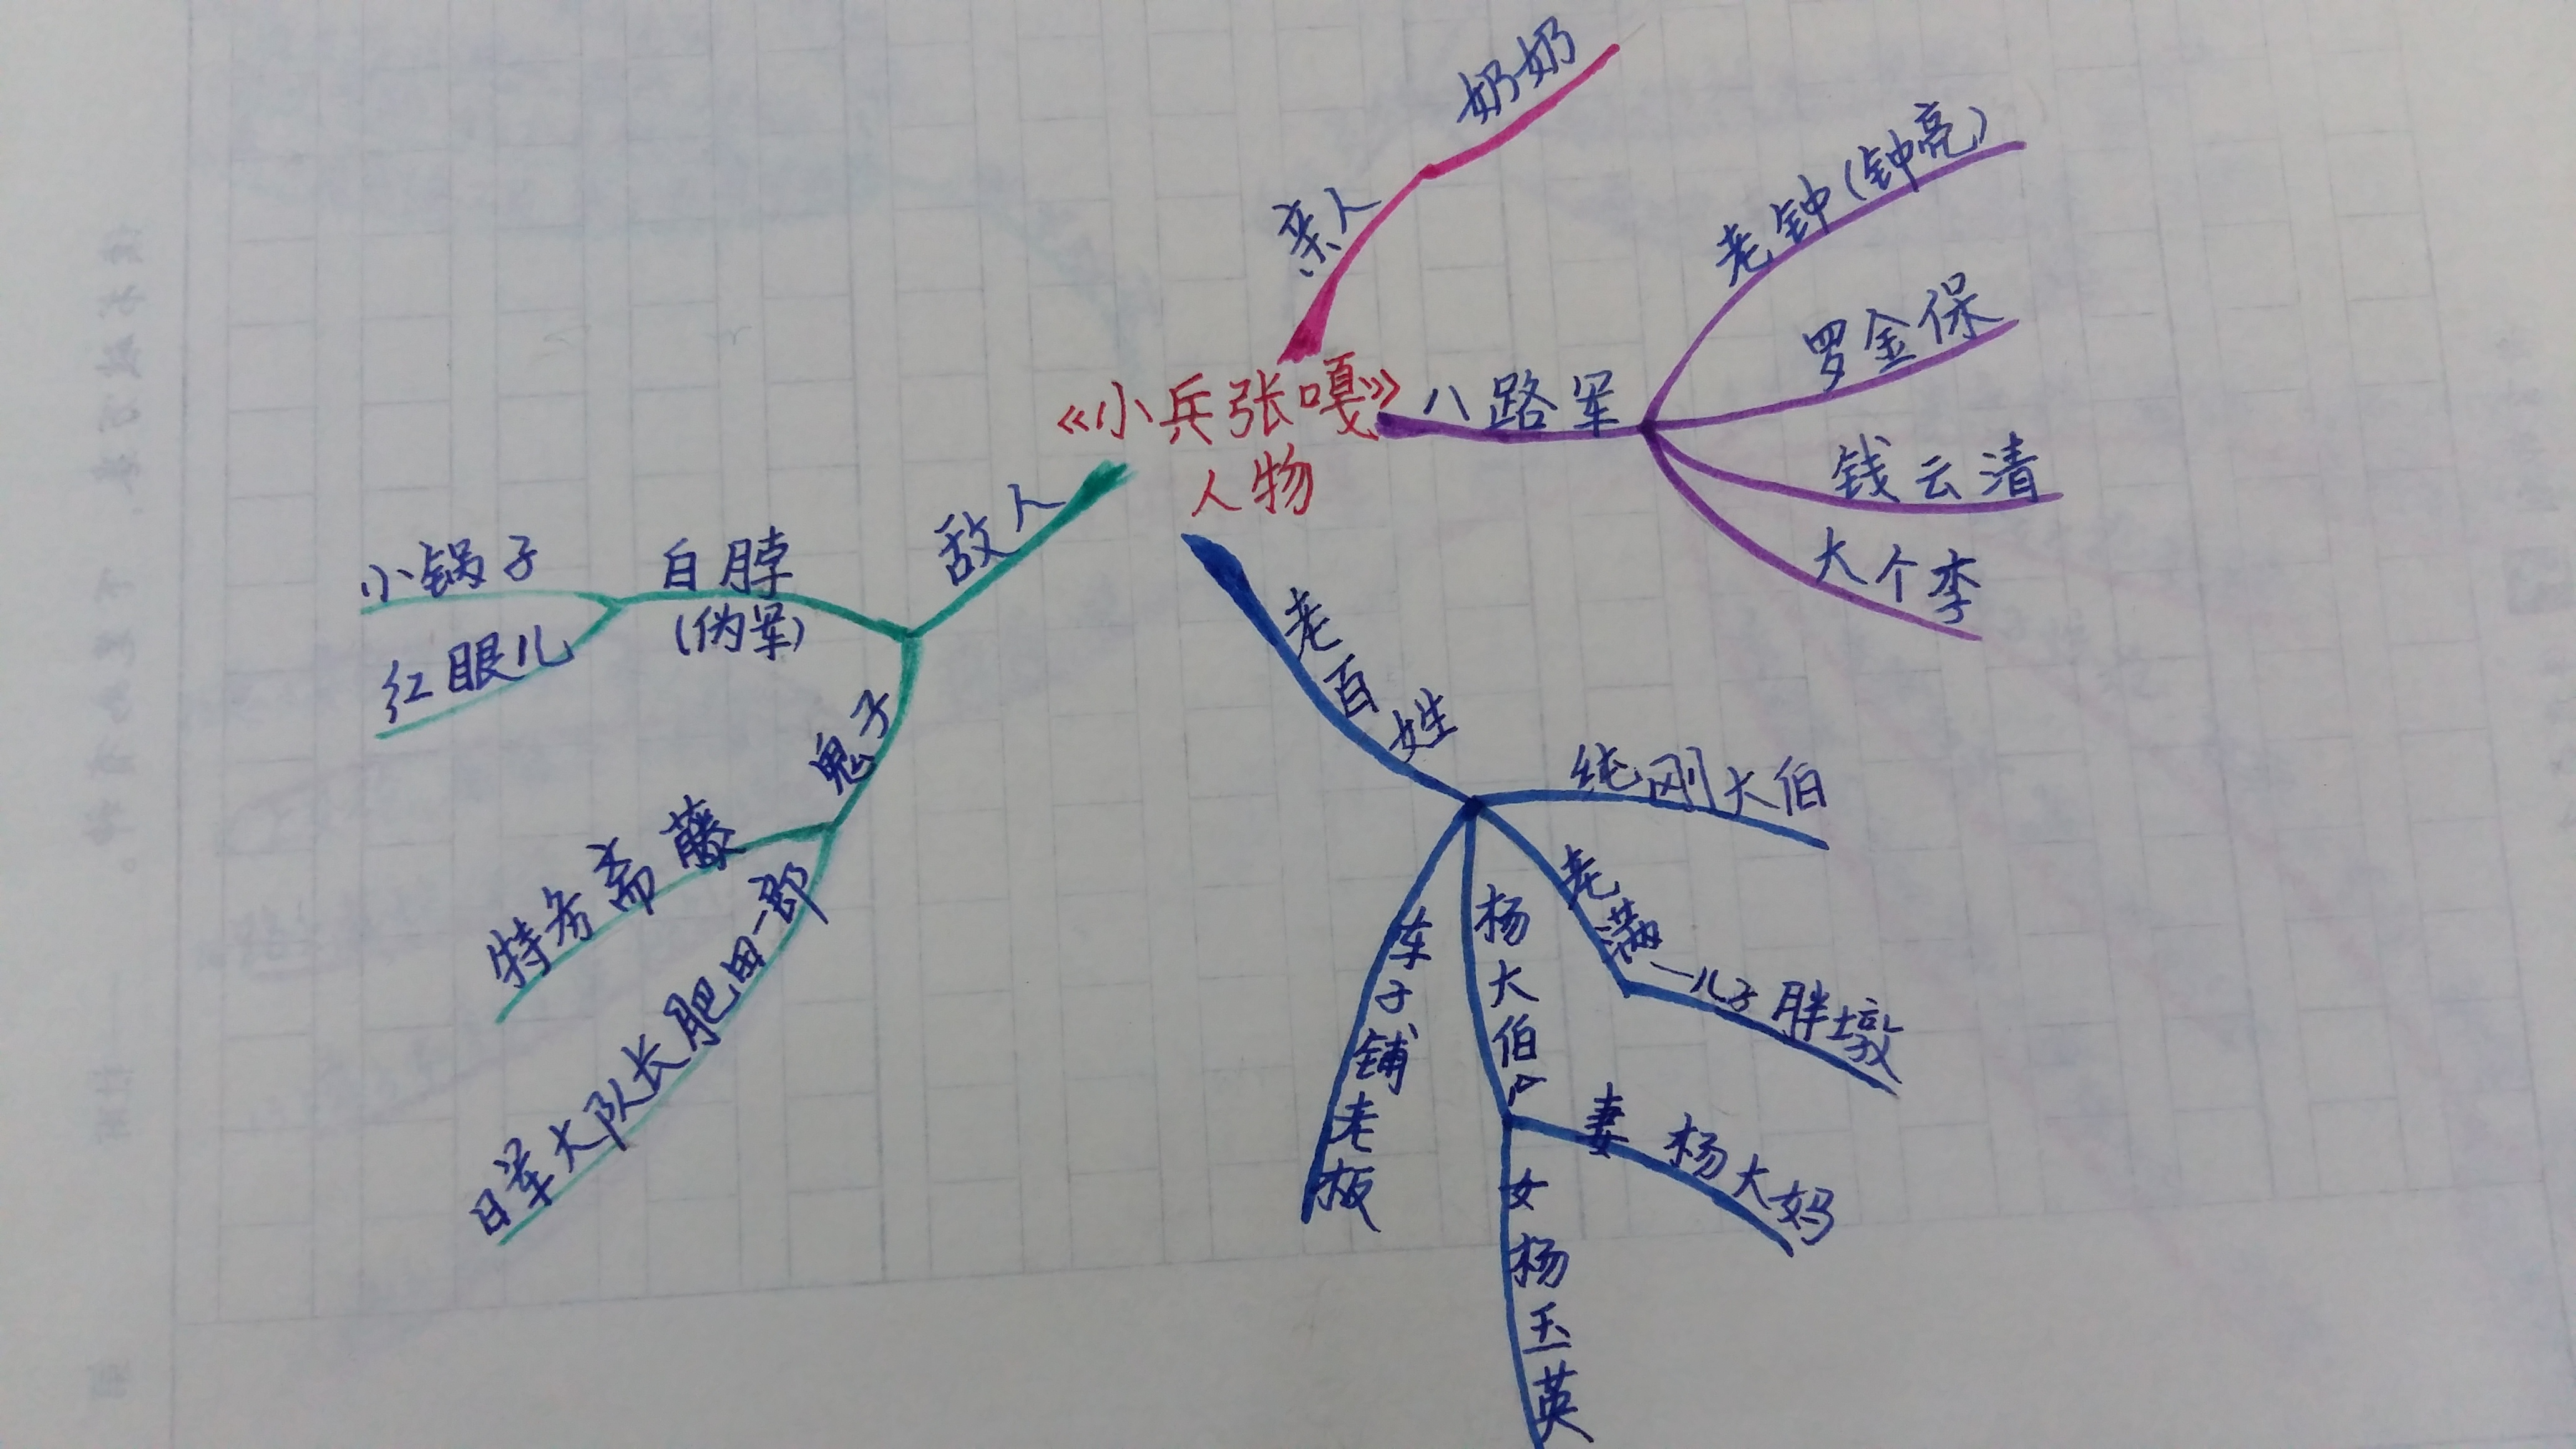 《小兵张嘎》
人物
亲人
奶奶
八路军
老钟(钟亮)
罗金保
钱云清
大个李
老百姓
纯刚大伯
老满
一儿子胖墩
杨大伯
妻 杨大妈
女杨玉英
车子铺老板
敌人
白脖
(伪军)
小锅子
红眼儿
鬼子
特务斋藤
日军大队长肥田一郎